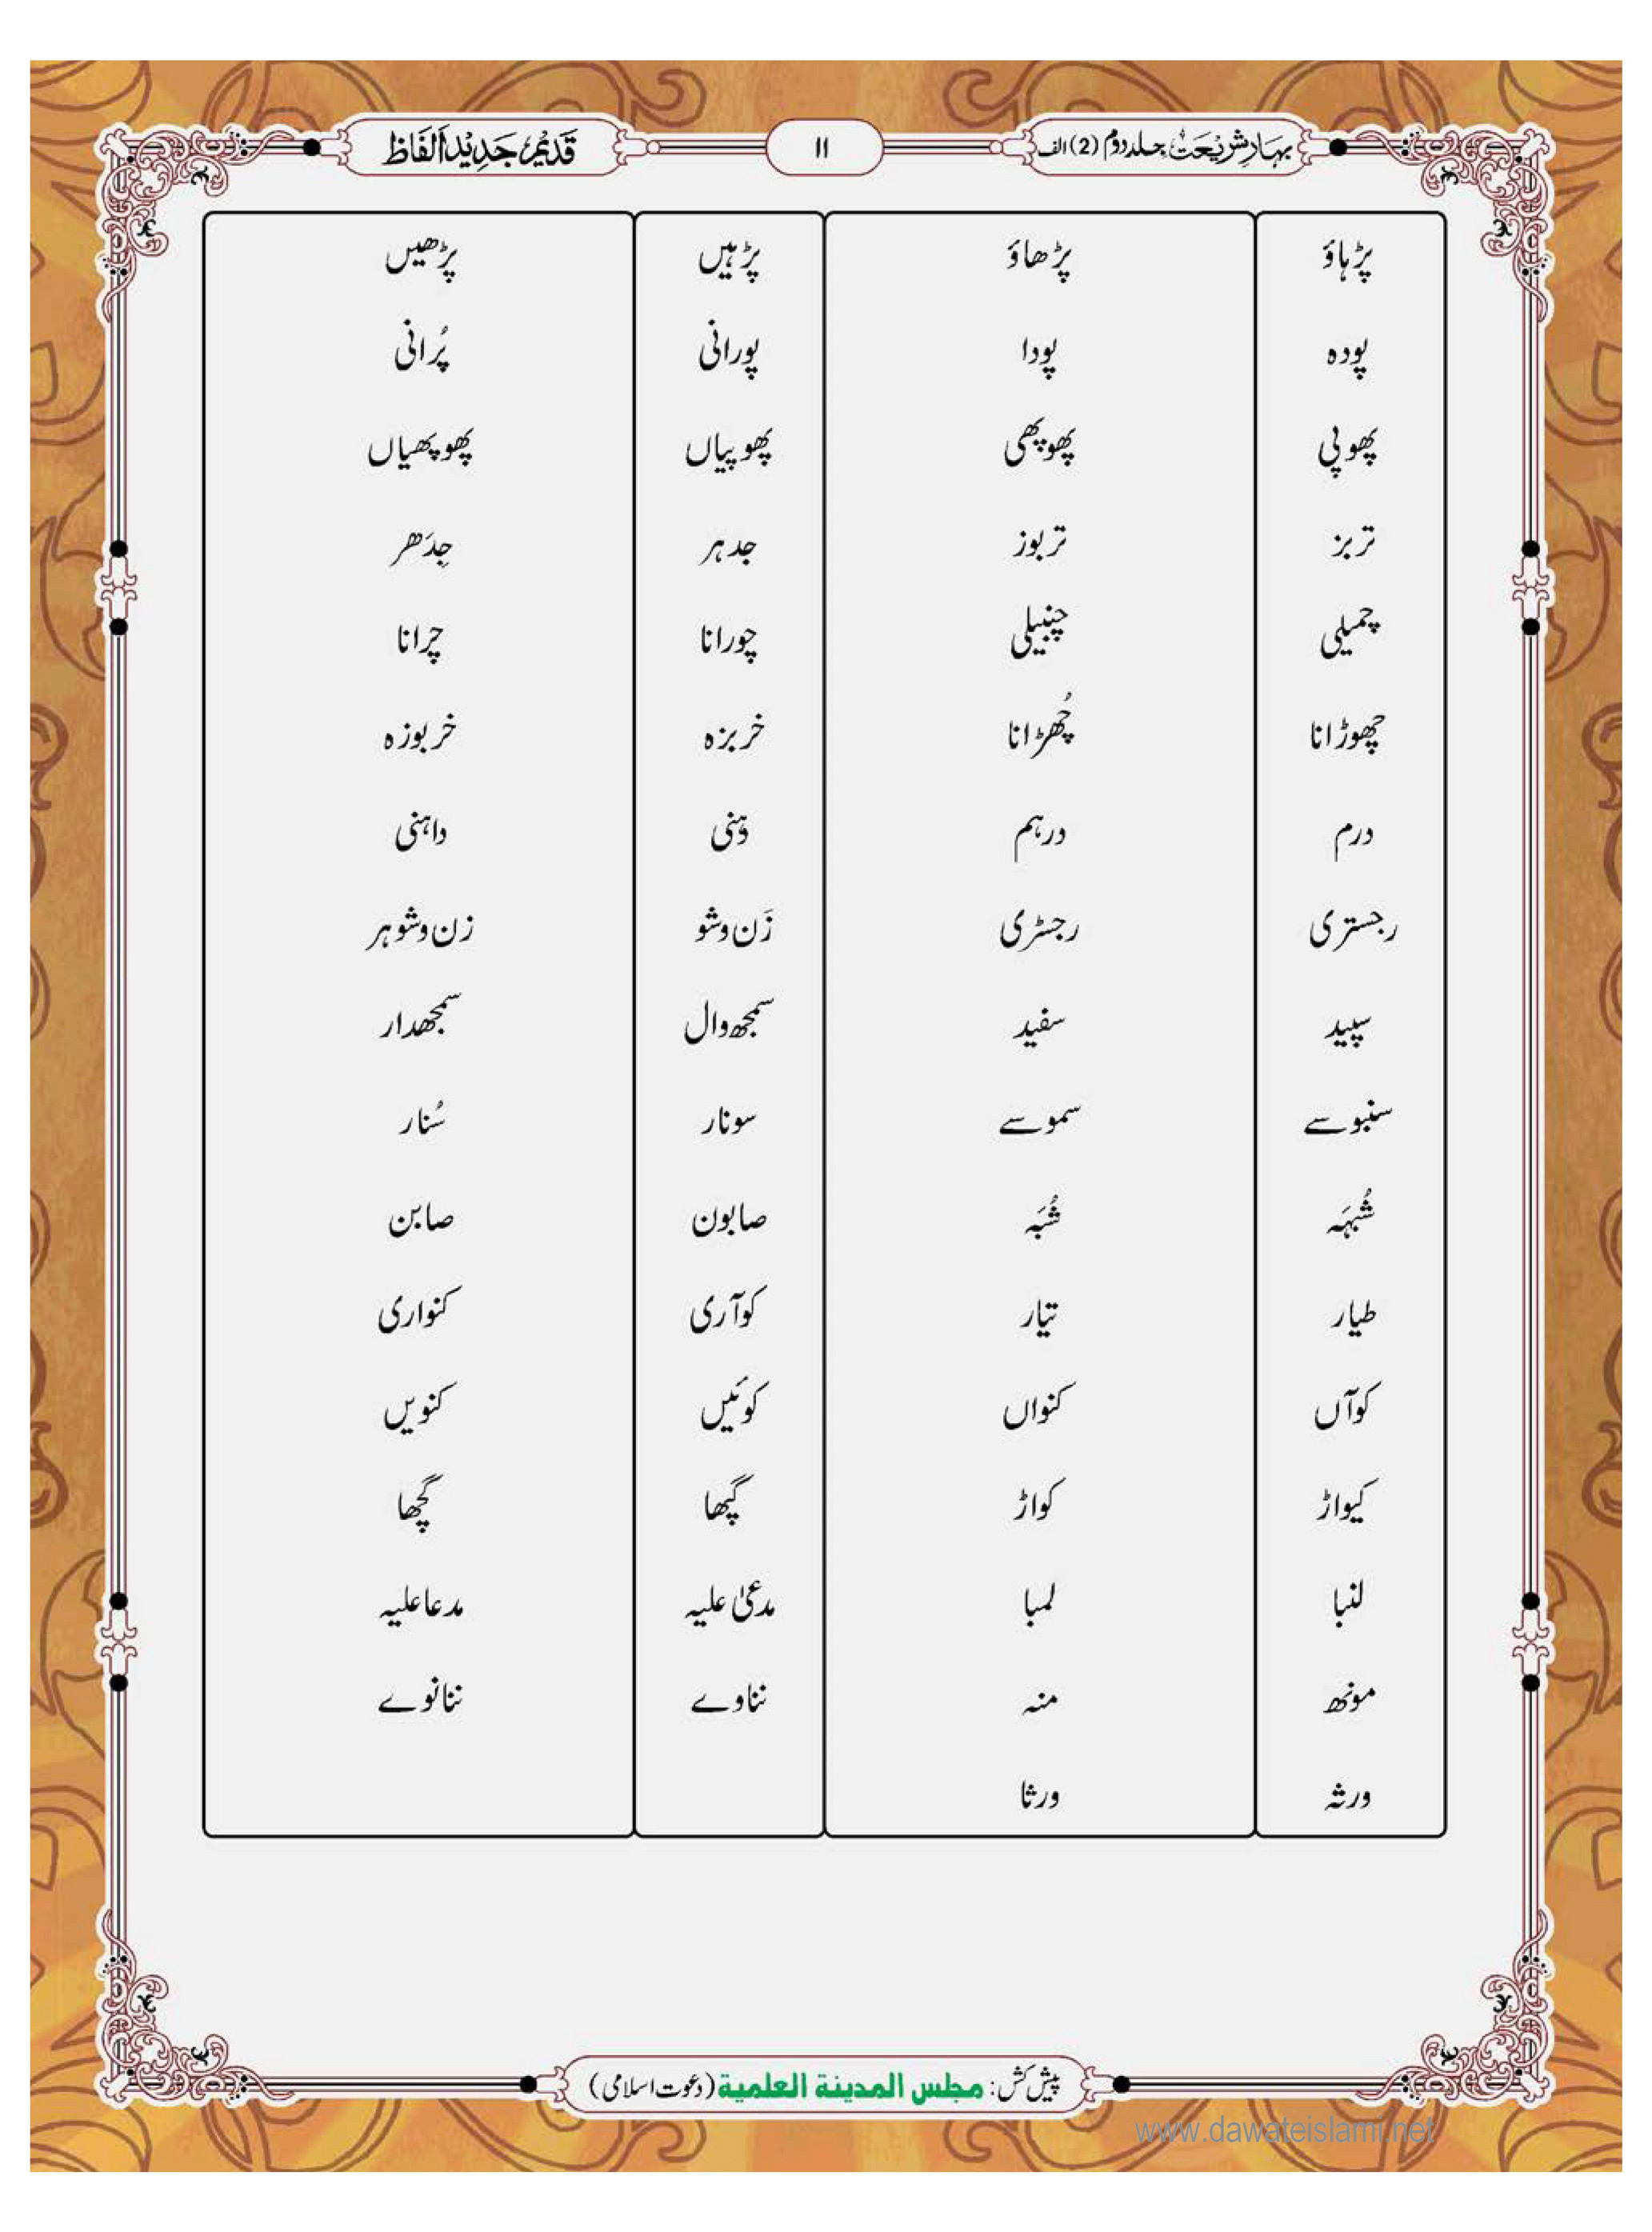 بہارِ شریعت جلد دوم (2) الف ۱۱ قدیم جدید الفاظ
پڑہاؤ پڑھاؤ پڑہیں پڑھیں
پودہ پودا پورانی پُرانی
پھوپی پھوپھی پھوپیاں پھوپھیاں
تربز تربوز جدہر جِدَھر
چمیلی چنبیلی چورانا چرانا
چھوڑانا چُھڑانا خربزہ خربوزہ
درم درہم دَہنی داہنی
رجستری رجسٹری زَن وشو زن وشوہر
سپید سفید سمجھ وال سمجھدار
سنبوسے سموسے سونار سُنار
شُبہَہ شُبَہ صابون صابن
طیار تیار کوآری کنواری
کوآں کنواں کوئیں کنویں
کیواڑ کواڑ گپھا گچھا
لنبا لمبا مدعیٰ علیہ مدعاعلیہ
مونھ منہ نناوے ننانوے
ورثہ ورثا
پیش کش: مجلس المدینۃ العلمیۃ (دعوت اسلامی)
www.dawateislami.net